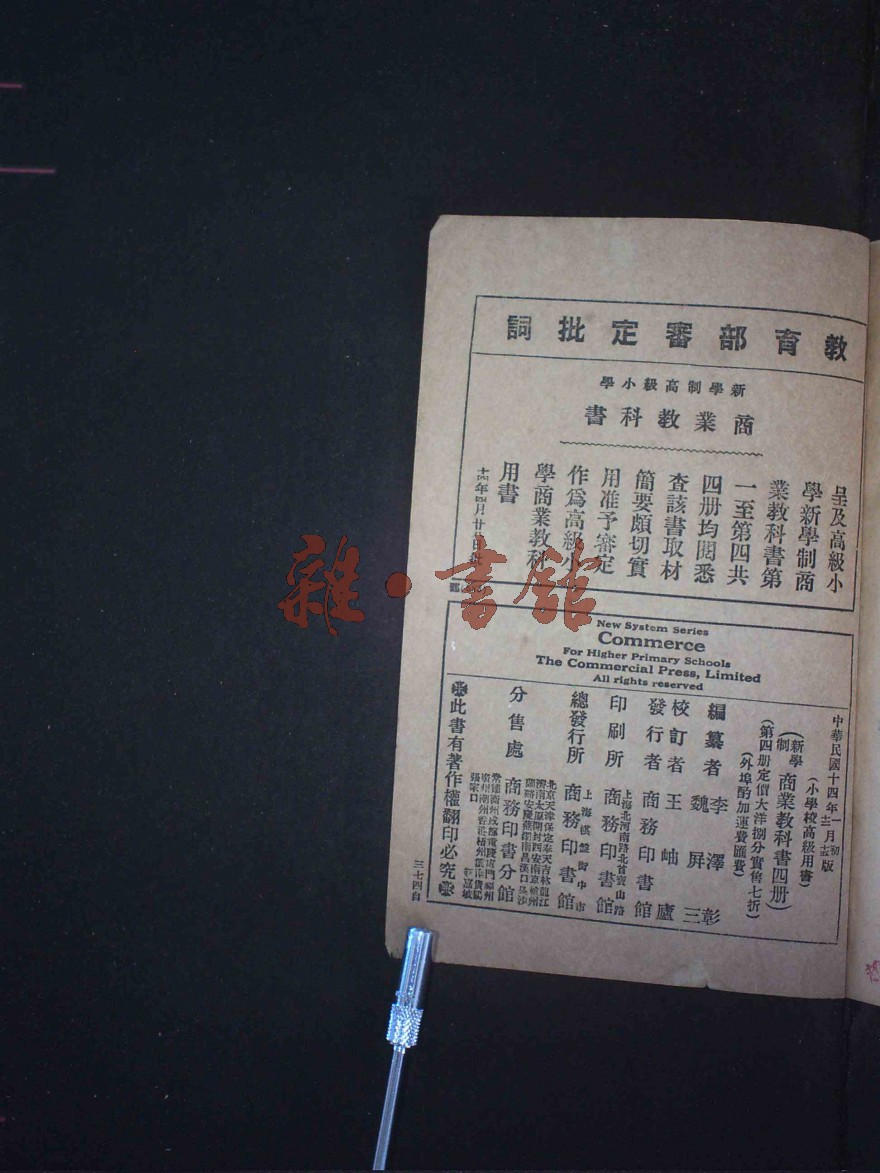 教育部審定批詞
新學制高級小學
商業教科書
呈及高級小
學新學制商
業教科書第
一至第四共
四册均閱悉
查該書取材
簡要頗切實
用准予審定
作爲高級小
學商業教科
用書
New System Series
Commerce
For Higher Primary Schools
The Commercial Press, Limited
All rights reserved
中華民國十四年
版
(小學校高級用書)
新學制
商業教科書四册)
(第四册定價大洋捌分實售七折)
(外埠酌加運費匯費)
編纂者
李澤彰
魏屏三
校訂者
王岫廬
發行者
商務印書館
印刷所
上海北河南路北首寶山路
商務印書館
總發行所
上海棋盤街中市
商務印書館
分售處
商務印書分館
※此書有著作權翻印必究※
三七四自
雜·書館